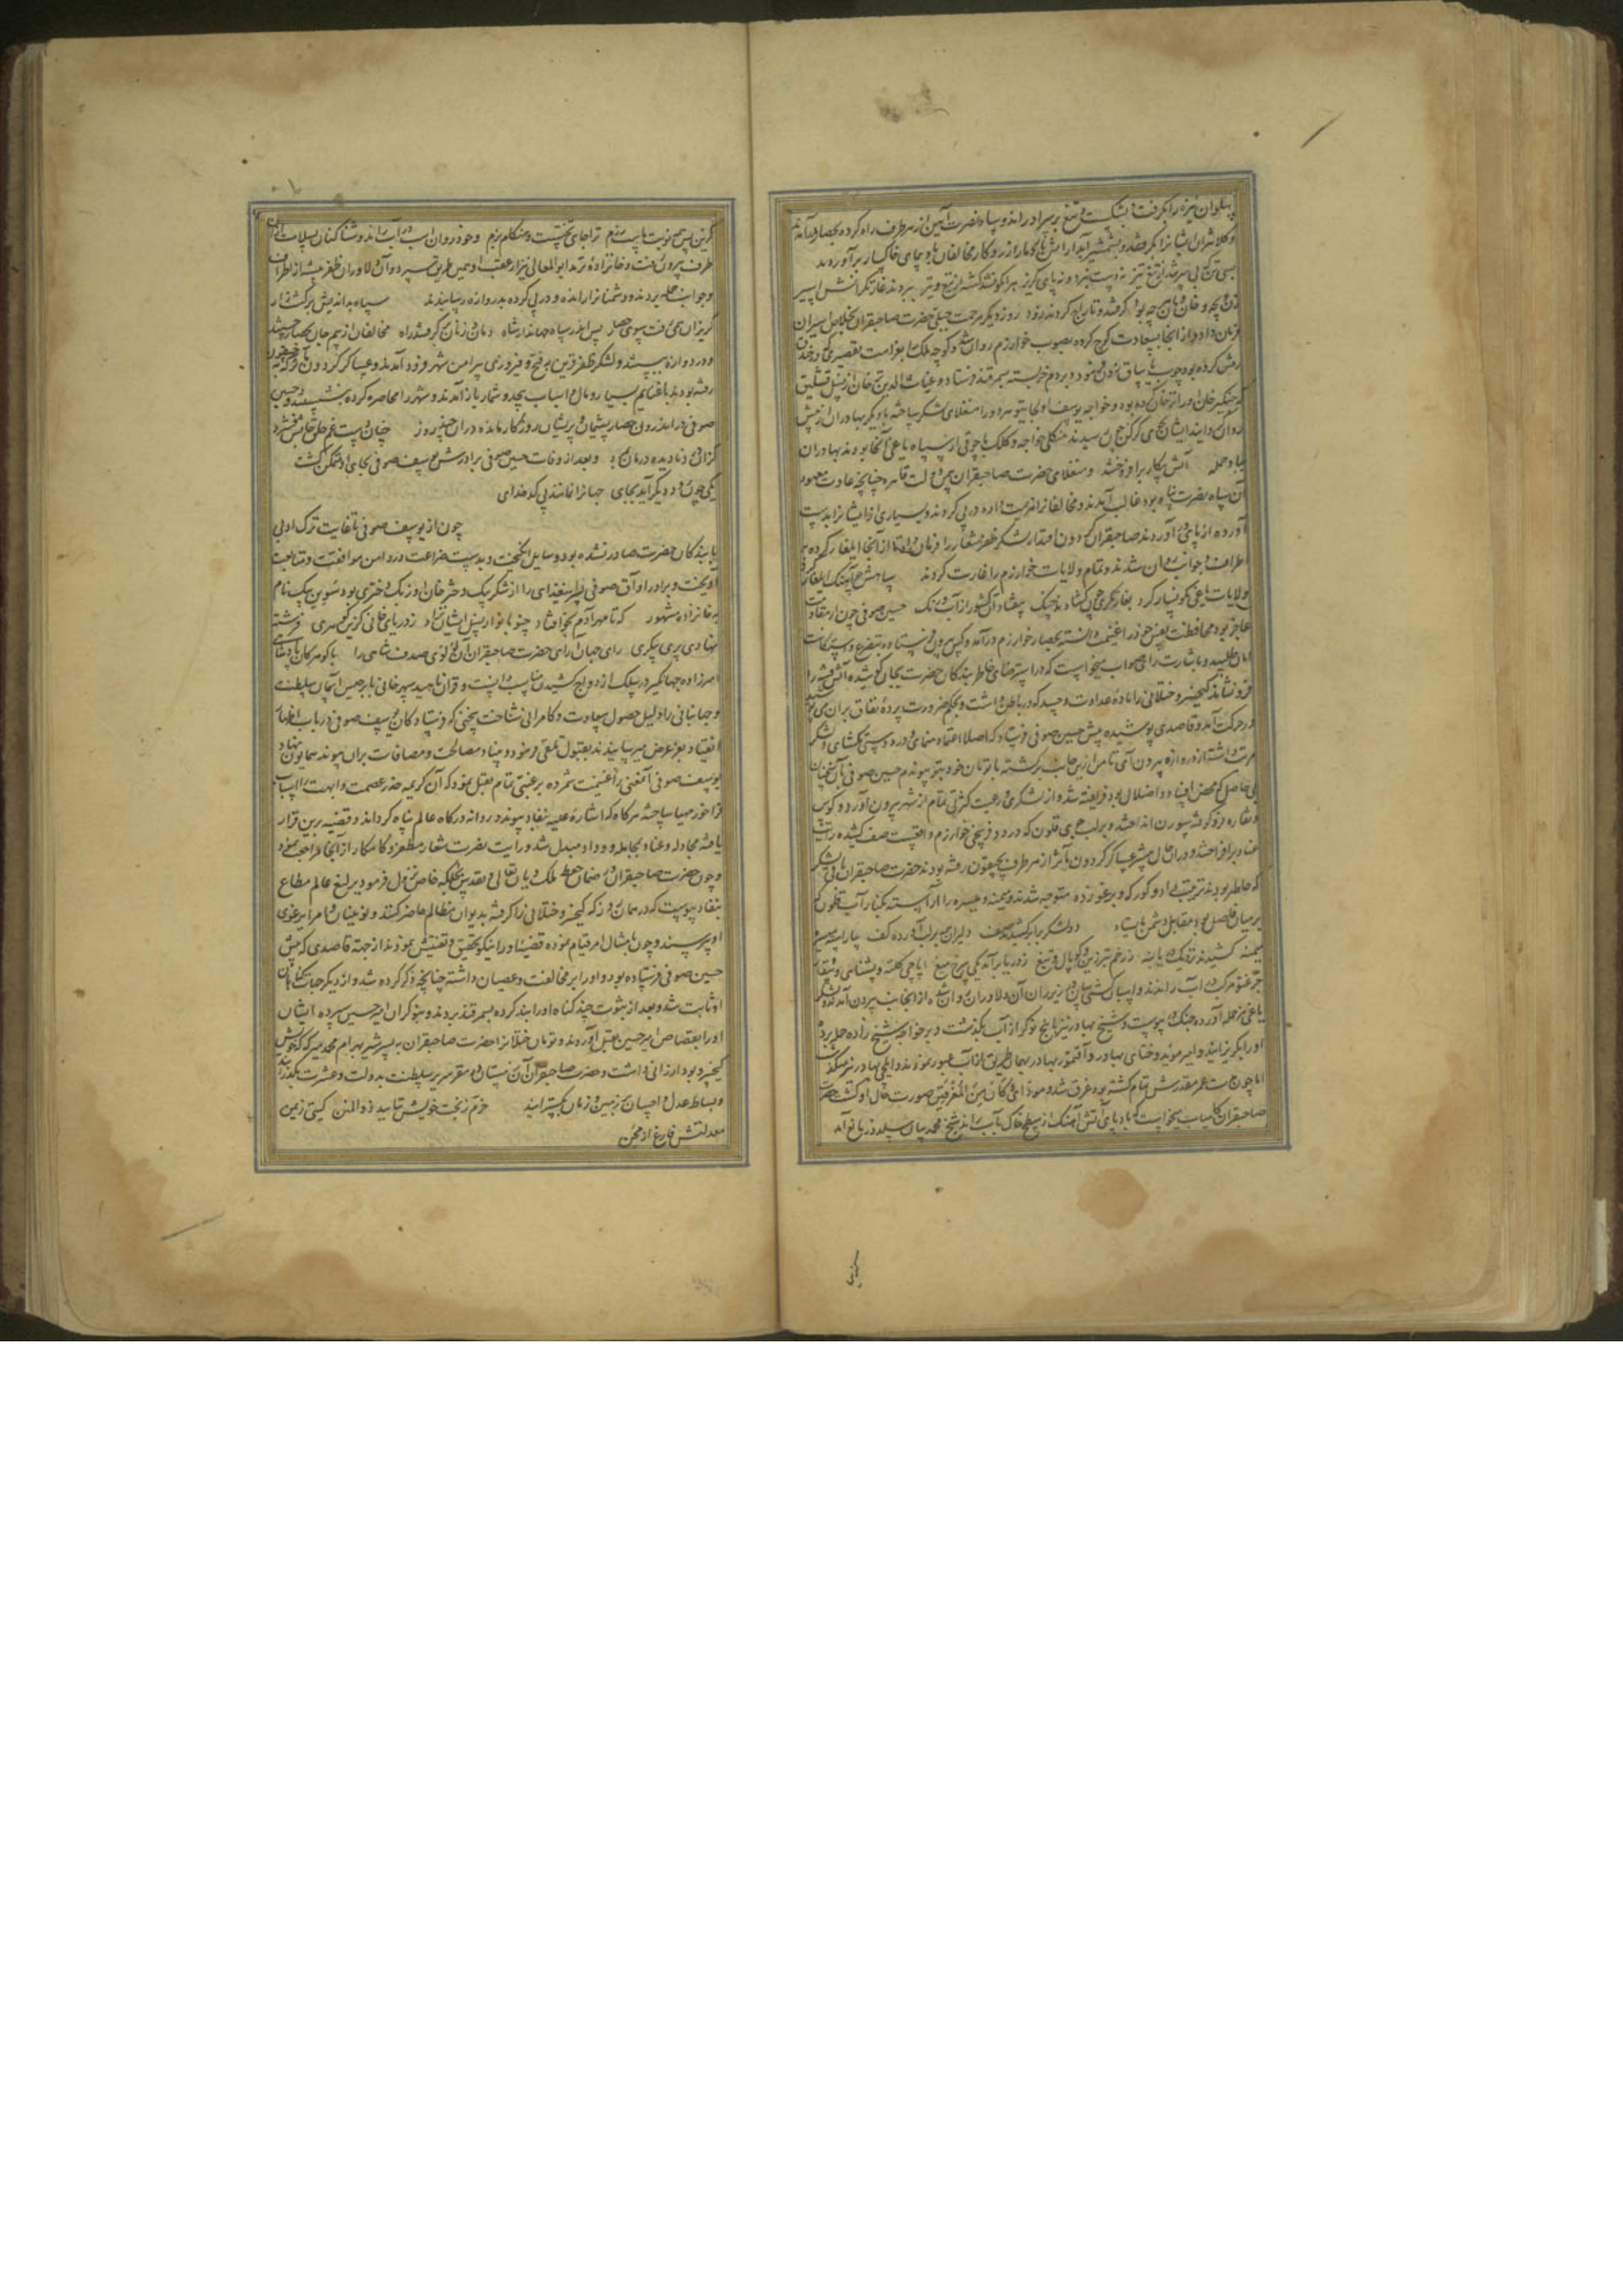 پهلوان نیزه را بگرفت و بشکست و تیغ بر سپر او راند و سپاه نصرت آیین از هر طرف راه کرده بحصار درآمدند
و کلانتران ایشانرا بگرفتند و بشمشیر آبدار آتش از روزگار مخالفان
بسی ترک بی سر شد از تیغ تیز نه دست نبرد و نه پای گریز هر آنکو نشد کشته از تیغ و تیر ببردند غارتگرانش اسیر
زن و بچه و خان و مان هر چه بود گرفتند و تاراج کردند زود روز دیگر مرحمت جبلی حضرت صاحبقران بخلاص اسیران
فرمان داد و از آنجا بسعادت کوچ کرده بصوب خوارزم روان شد و کوچه ملک را بغرامت تقصیری که در خندق
رفتن کرده بود چوب یاساق زدن فرمود و بر دم خر بسته بسمرقند فرستاد و غیاث الدین ترخان از نسل قشلیق
که چنگیز خان او را ترخان کرده بود و خواجه یوسف اولجایتو سردور را منغلای لشکر ساخته با دیگر بهادران از پیش
روان گردانید ایشان بجوی گرلن چون رسیدند منکلی خواجه و کلک با جوقی از سپاه یاغی آنجا بودند بهادران
بباد حمله آتش پیکار برافروختند و منغلای حضرت صاحبقران چنانچه عادت معهود
آن سپاه نصرت پناه بود غالب آمدند و مخالفانرا هزیمت داده در پی کردند و بسیاری از ایشانرا بدست
آورده از پای در آوردند صاحبقران گردون اقتدار لشکر ظفر شعار را فرمان داد تا از آنجا ایلغار کرده
اطراف و جوانب روان شدند و تمام ولایات خوارزم را غارت کردند سپاهش چو آهنگ ایلغار کرد
ولایات یاغی نگونسار کرد بغارتگری چون گشادند چنگ بیفتاد آن کشور از آب و رنگ حسین صوفی چون از مقاومت
عاجز بود محافظت نفس خود را غنیمت دانسته بحصار خوارزم درآمد و کس بیرون فرستاد و بتضرع و استکانت
امان طلبید و باشارت رای صواب میخواست که در استرضای خاطر بندگان حضرت بجان کوشیده آتش فتنه را
فرو نشاند کیخسرو ختلانی را ماده عداوت و حسد که در باطن داشت و بحکم ضرورت پرده نفاق بر آن می پوشید
در حرکت آمد و قاصدی پوشیده پیش حسین صوفی فرستاد که اصلا اعتماد منمای و در دوستی مگشای و لشکر
مرتب داشته از دروازه بیرون آی تا من از این جانب برگشته با تومان خود بتو پیوندم حسین صوفی بآن سخنان
بی حاصل که محض افساد و اضلال بود فریفته شد و از لشکری و رعیت کثرتی تمام از شهر بیرون آورد و کوس
و نقاره فرو کوفته سورن انداختند و بر لب جوی قاون که در دو فرسخی خوارزم واقعست صف کشیده رایت
عناد برافراختند و در آن حال بیشتر عساکر گردون مآثر از هر طرف بچپغون رفته بودند حضرت صاحبقران با لشکر
که حاضر بودند ترتیب داد و کورکه و برغو زده متوجه شدند و میمنه و میسره را آراسته بکنار آب قاون که
در میان فاصل بود مقابل دشمن بایستاد دو لشکر برابر کشیدند صف دلیران بر لب آورده کف
میمنه کشیدند نزدیک زخم تبرزین و کوپال و تیغ ز دریا برآمد یکی سرخ میغ ایاجی کلته و
جز عنقه مرکب در آب راندند و اسپان آن دلاوران روان شده از آنجانب بیرون آمدند و لشکر
یاغی نیز حمله آورده جنک در پیوست و شیخ علی بهادر نیز با پنج نوکر از آب بگذشت و بر خواجه شیخ زاده حمله برد
او را بگریزانید و امیر موید و ختای بهادر و آقتمور بهادر بهمان طریق از آب عبور نمودند و ایلچی بهادر نیز میگذشت
اما چون مدت عمر مقدرش تمام گشته بود غرق شد و مودای و کان من المغرقین صورت حال او گشت حضرت
صاحبقران کامیاب میخواست که باد پای آتش آهنگ از سطح خاک بآب راند شیخ محمد بیان سلدوز زبانو آمد
گزین پس همه نوبت ماست رزم ترا جای تختست و هنگام بزم و خود روان اسب در آب راند و شناکنان بسلامت از آن
طرف بیرون رفت و خانزاده ترمد ابوالمعالی نیز از عقب او بهمین طریق بسپرد و آن دلاوران ظفر پیشه از اطراف
و جوانب حمله بردند و دشمنانرا رانده و در پی کرده بدروازه رسانیدند سپاه بداندیش برگشته زار
گریزان همی رفت سوی حصار پس اندر سپاه جهاندار شاه دمان و زنان برگرفتند راه مخالفان از بیم جان بحصار جستند
و در دروازه ببستند و لشکر ظفر قرین بفتح و فیروزی پیرامن شهر فرود آمدند و عساکر گردون مآثر که به
رفته بودند با غنایم بسیار و مال و اسباب بیحد و شمار باز آمدند و شهر را محاصره کرده بنشستند و حسین
صوفی در اندرون حصار پشیمان و پریشان روزگار مانده در آن چند روز چنان دست غم حلق جانش فشرد
و نادیده درمان بمرد و بعد از وفات حسین صوفی برادرش یوسف صوفی بجای او متمکن گشت
یکی چون رود دیگر آید بجای جهانرا نمانند بی کدخدای
چون از یوسف صوفی تا غایت ترک ادبی
با بندگان حضرت صادر نشده بود وسایل انگیخت و بدست ضراعت در دامن موافقت و متابعت
آویخت و برادر او آق صوفی را از شکر بیک دختر خان اوزبک دختری بود سوین بیک نام
به خانزاده مشهور که تا مهر آدم بحوا فتاد چنو بانو از نسل ایشان نزاد ز دریای خانی گزین گوهری فرشته
نهادی پری پیکری رای جهان آرای حضرت صاحبقران آن لؤلؤی صدف شاهی را با گوهر کان پادشاهی
امیرزاده جهانگیر در سلک ازدواج کشیدن مناسب دانست و قران ناهید سپهر خانی با برجیس آسمان سلطنت
و جهانبانی را دلیل حصول سعادت و کامرانی شناخت سخنی که فرستادگان یوسف صوفی در باب اظهار
انقیاد بعز عرض میرسانیدند بقبول تلقی فرمود و بنیاد مصالحت و مصافات بر آن پیوند همایون نهاد
یوسف صوفی آنمعنی را غنیمت شمرده برغبتی تمام تقبل نمود که آن کریمه خدر عصمت و ابهت را اسباب
فراخور مهیا ساخته هرگاه که اشاره علیه بنفاذ پیوندد روانه درگاه عالم پناه گرداند و قضیه برین قرار
یافته مجادله و عناد بمجامله و وداد مبدل شد و رایت نصرت شعار مظفر و کامکار از آنجا مراجعت نمود
و چون حضرت صاحبقران در ضمان حفظ ملک دیان تعالی و تقدس بتختگاه خاص نزول فرمود یرلیغ عالم مطاع
بنفاذ پیوست که در همان روز که کیخسرو ختلانی را گرفته بدیوان مظالم حاضر کنند و نویینان و امرا یرغوی
او پرسیدند و چون بامتثال امر قیام نموده قضیه او را نیکو تحقیق و تفتیش نمودند از جهة قاصدی که پیش
حسین صوفی فرستاده بود و او را بر مخالفت و عصیان داشته چنانچه ذکر کرده شد و از دیگر جهات گناه بر
او ثابت شد و بعد از ثبوت چند گناه او را بند کرده بسمرقند بردند و بنوکران امیر حسین سپرده ایشان
او را بقصاص امیر حسین بقتل آوردند و تومان ختلانرا حضرت صاحبقران به پسر شیر بهرام محمد میرکه که خویش
کیخسرو بود ارزانی داشت و حضرت صاحبقران آن زمستان در مقر سریر سلطنت بدولت و عشرت بگذرانید
و بساط عدل و احسان بر زمین و زمان بگسترانید خرم ز بخت خویش بتایید ذوالمنن گیتی ز یمن
معدلتش فارغ از محن